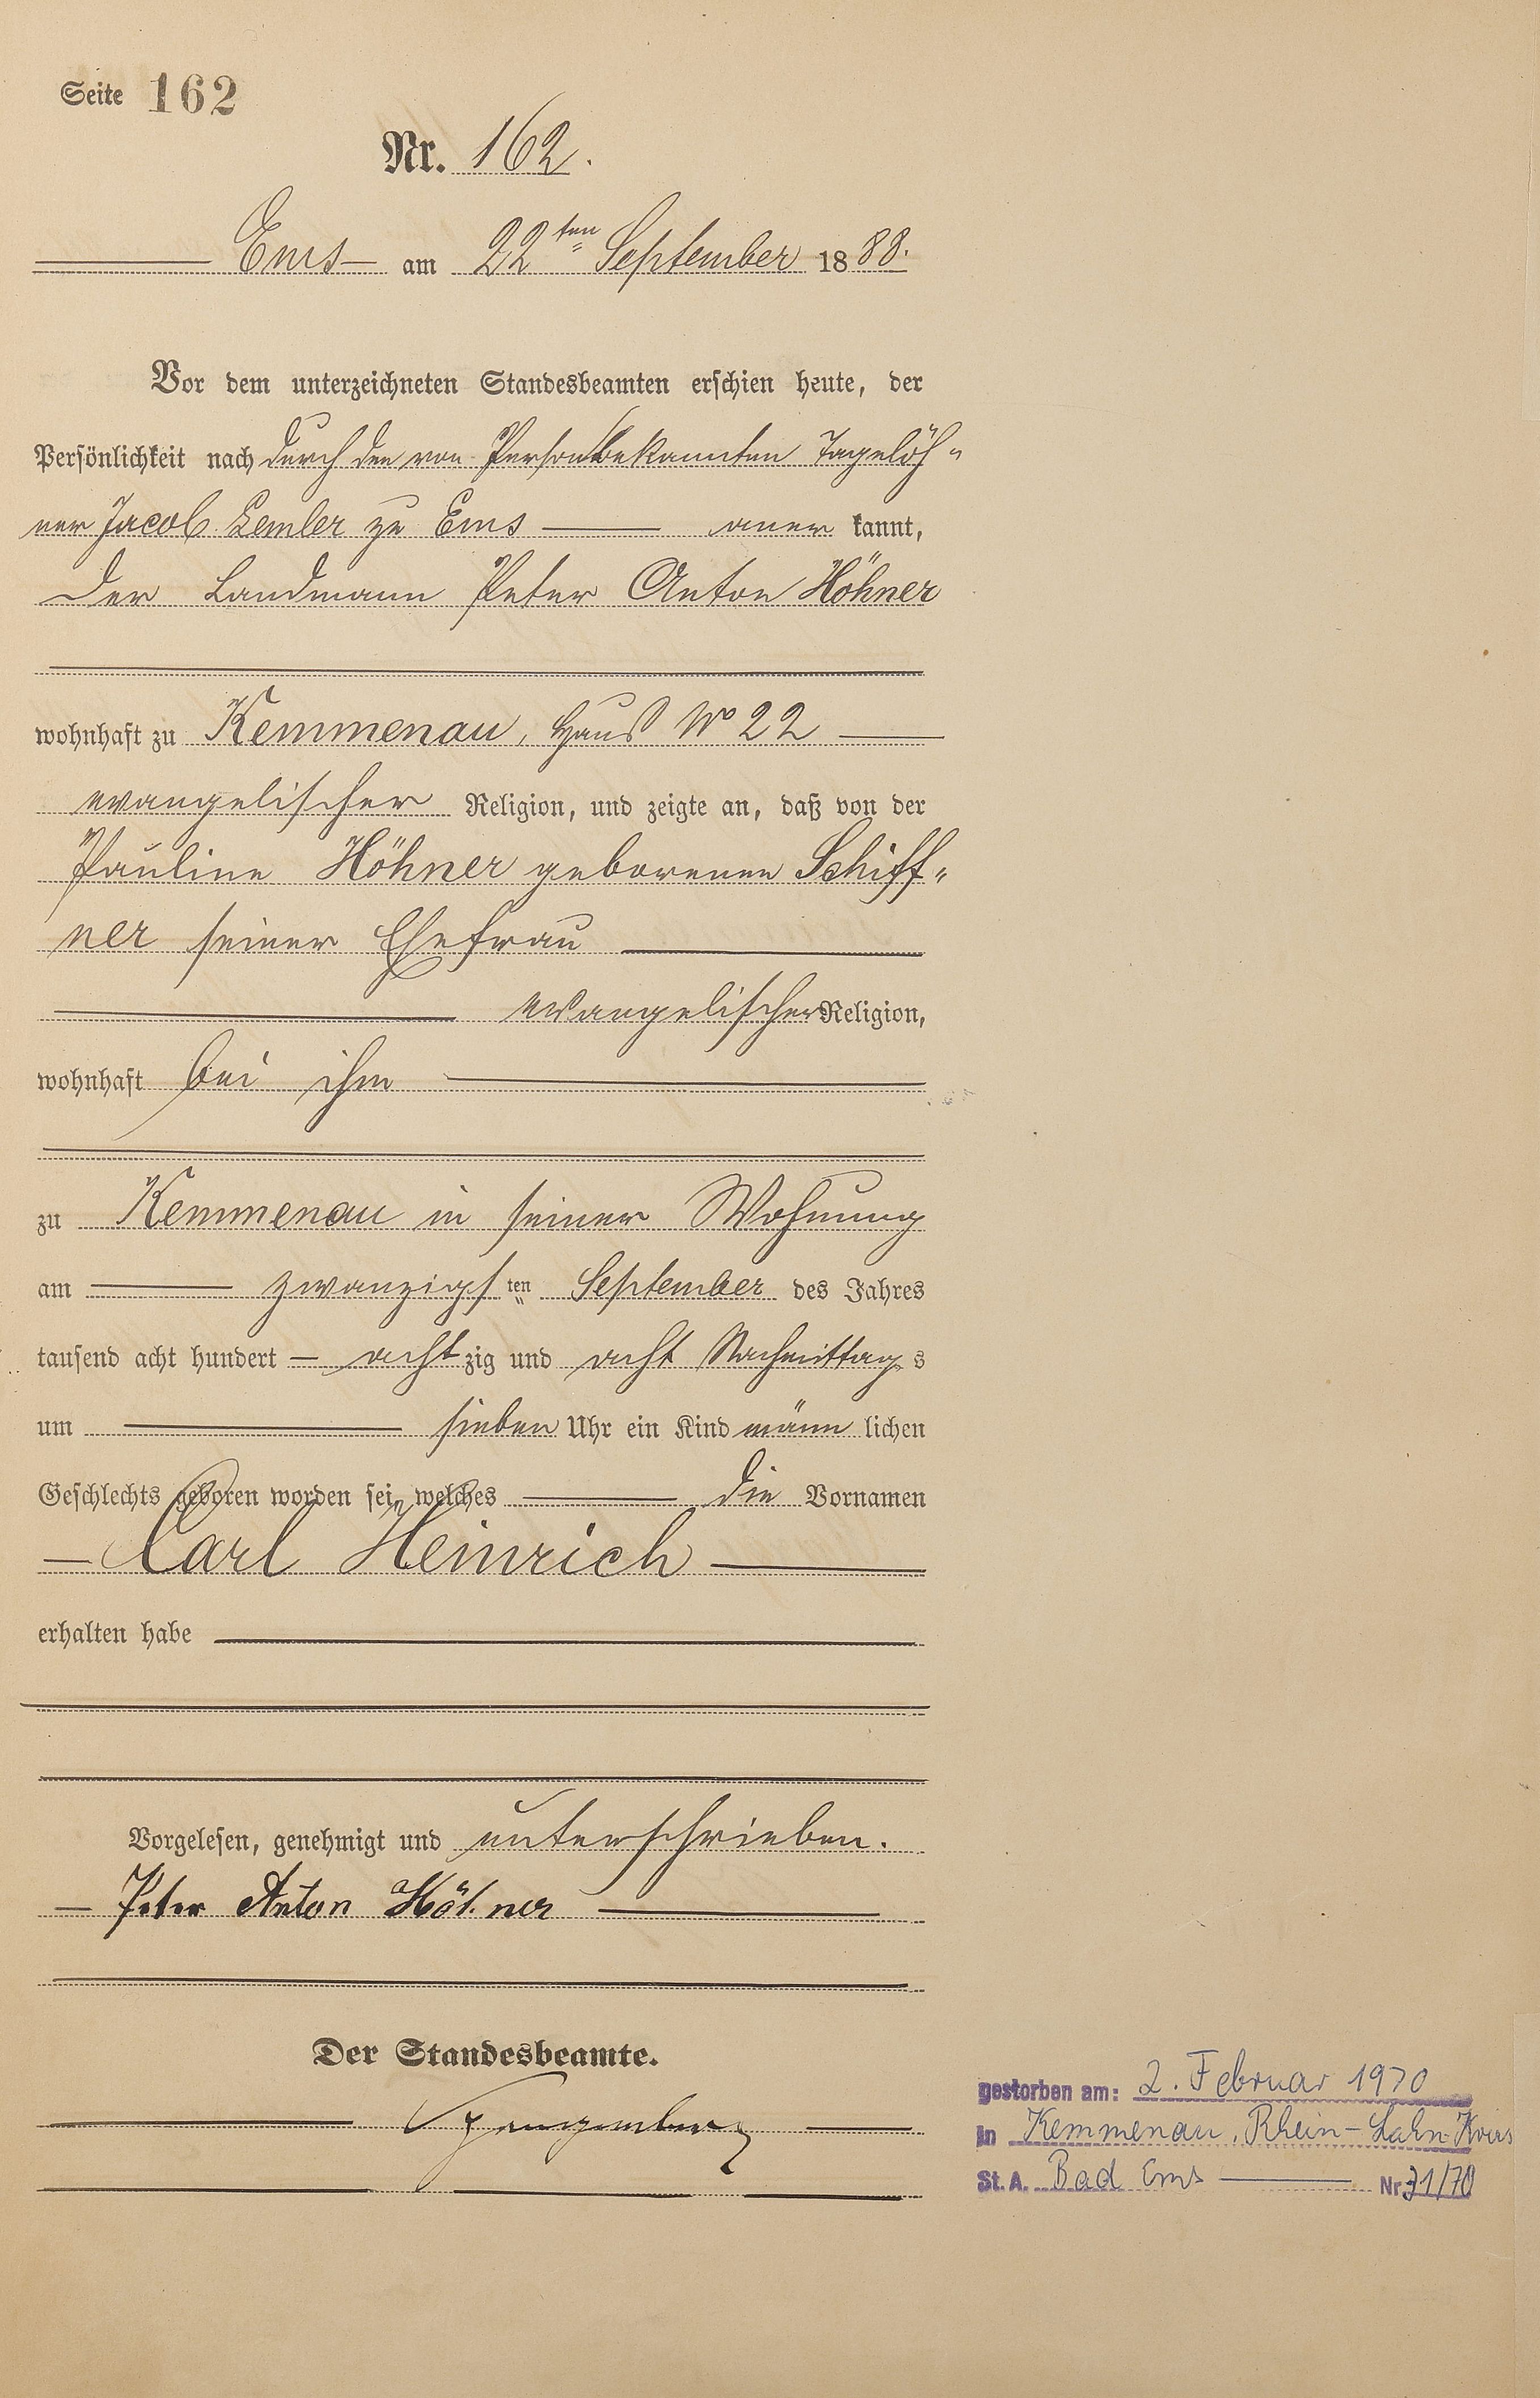 Seite 162
Nr. 162.
Ems am 22ten September 1888.
Vor dem unterzeichneten Standesbeamten erschien heute, der
Persönlichkeit nach durch den von Person bekannten Tagelöh-
ner Jacob Lemler zu Ems aner kannt,
der Landmann Peter Anton Höhner
wohnhaft zu Kemmenau, Haus No 22
evangelischer Religion, und zeigte an, daß von der
Pauline Höhner geborenen Schiff-
ner seiner Ehefrau
evangelischer Religion,
wohnhaft bei ihm
zu Kemmenau in seiner Wohnung
am zwanzigsten September des Jahres
tausend acht hundert achtzig und acht Nachmittags
um sieben Uhr ein Kind männlichen
Geschlechts geboren worden sei, welches die Vornamen
Carl Heinrich
erhalten habe
Vorgelesen, genehmigt und unterschrieben.
Peter Anton Höhner
Der Standesbeamte.
gestorben am: 2. Februar 1970
in Kemmenau, Rhein-Lahn-Kreis
St. A. Bad Ems Nr. 31/70